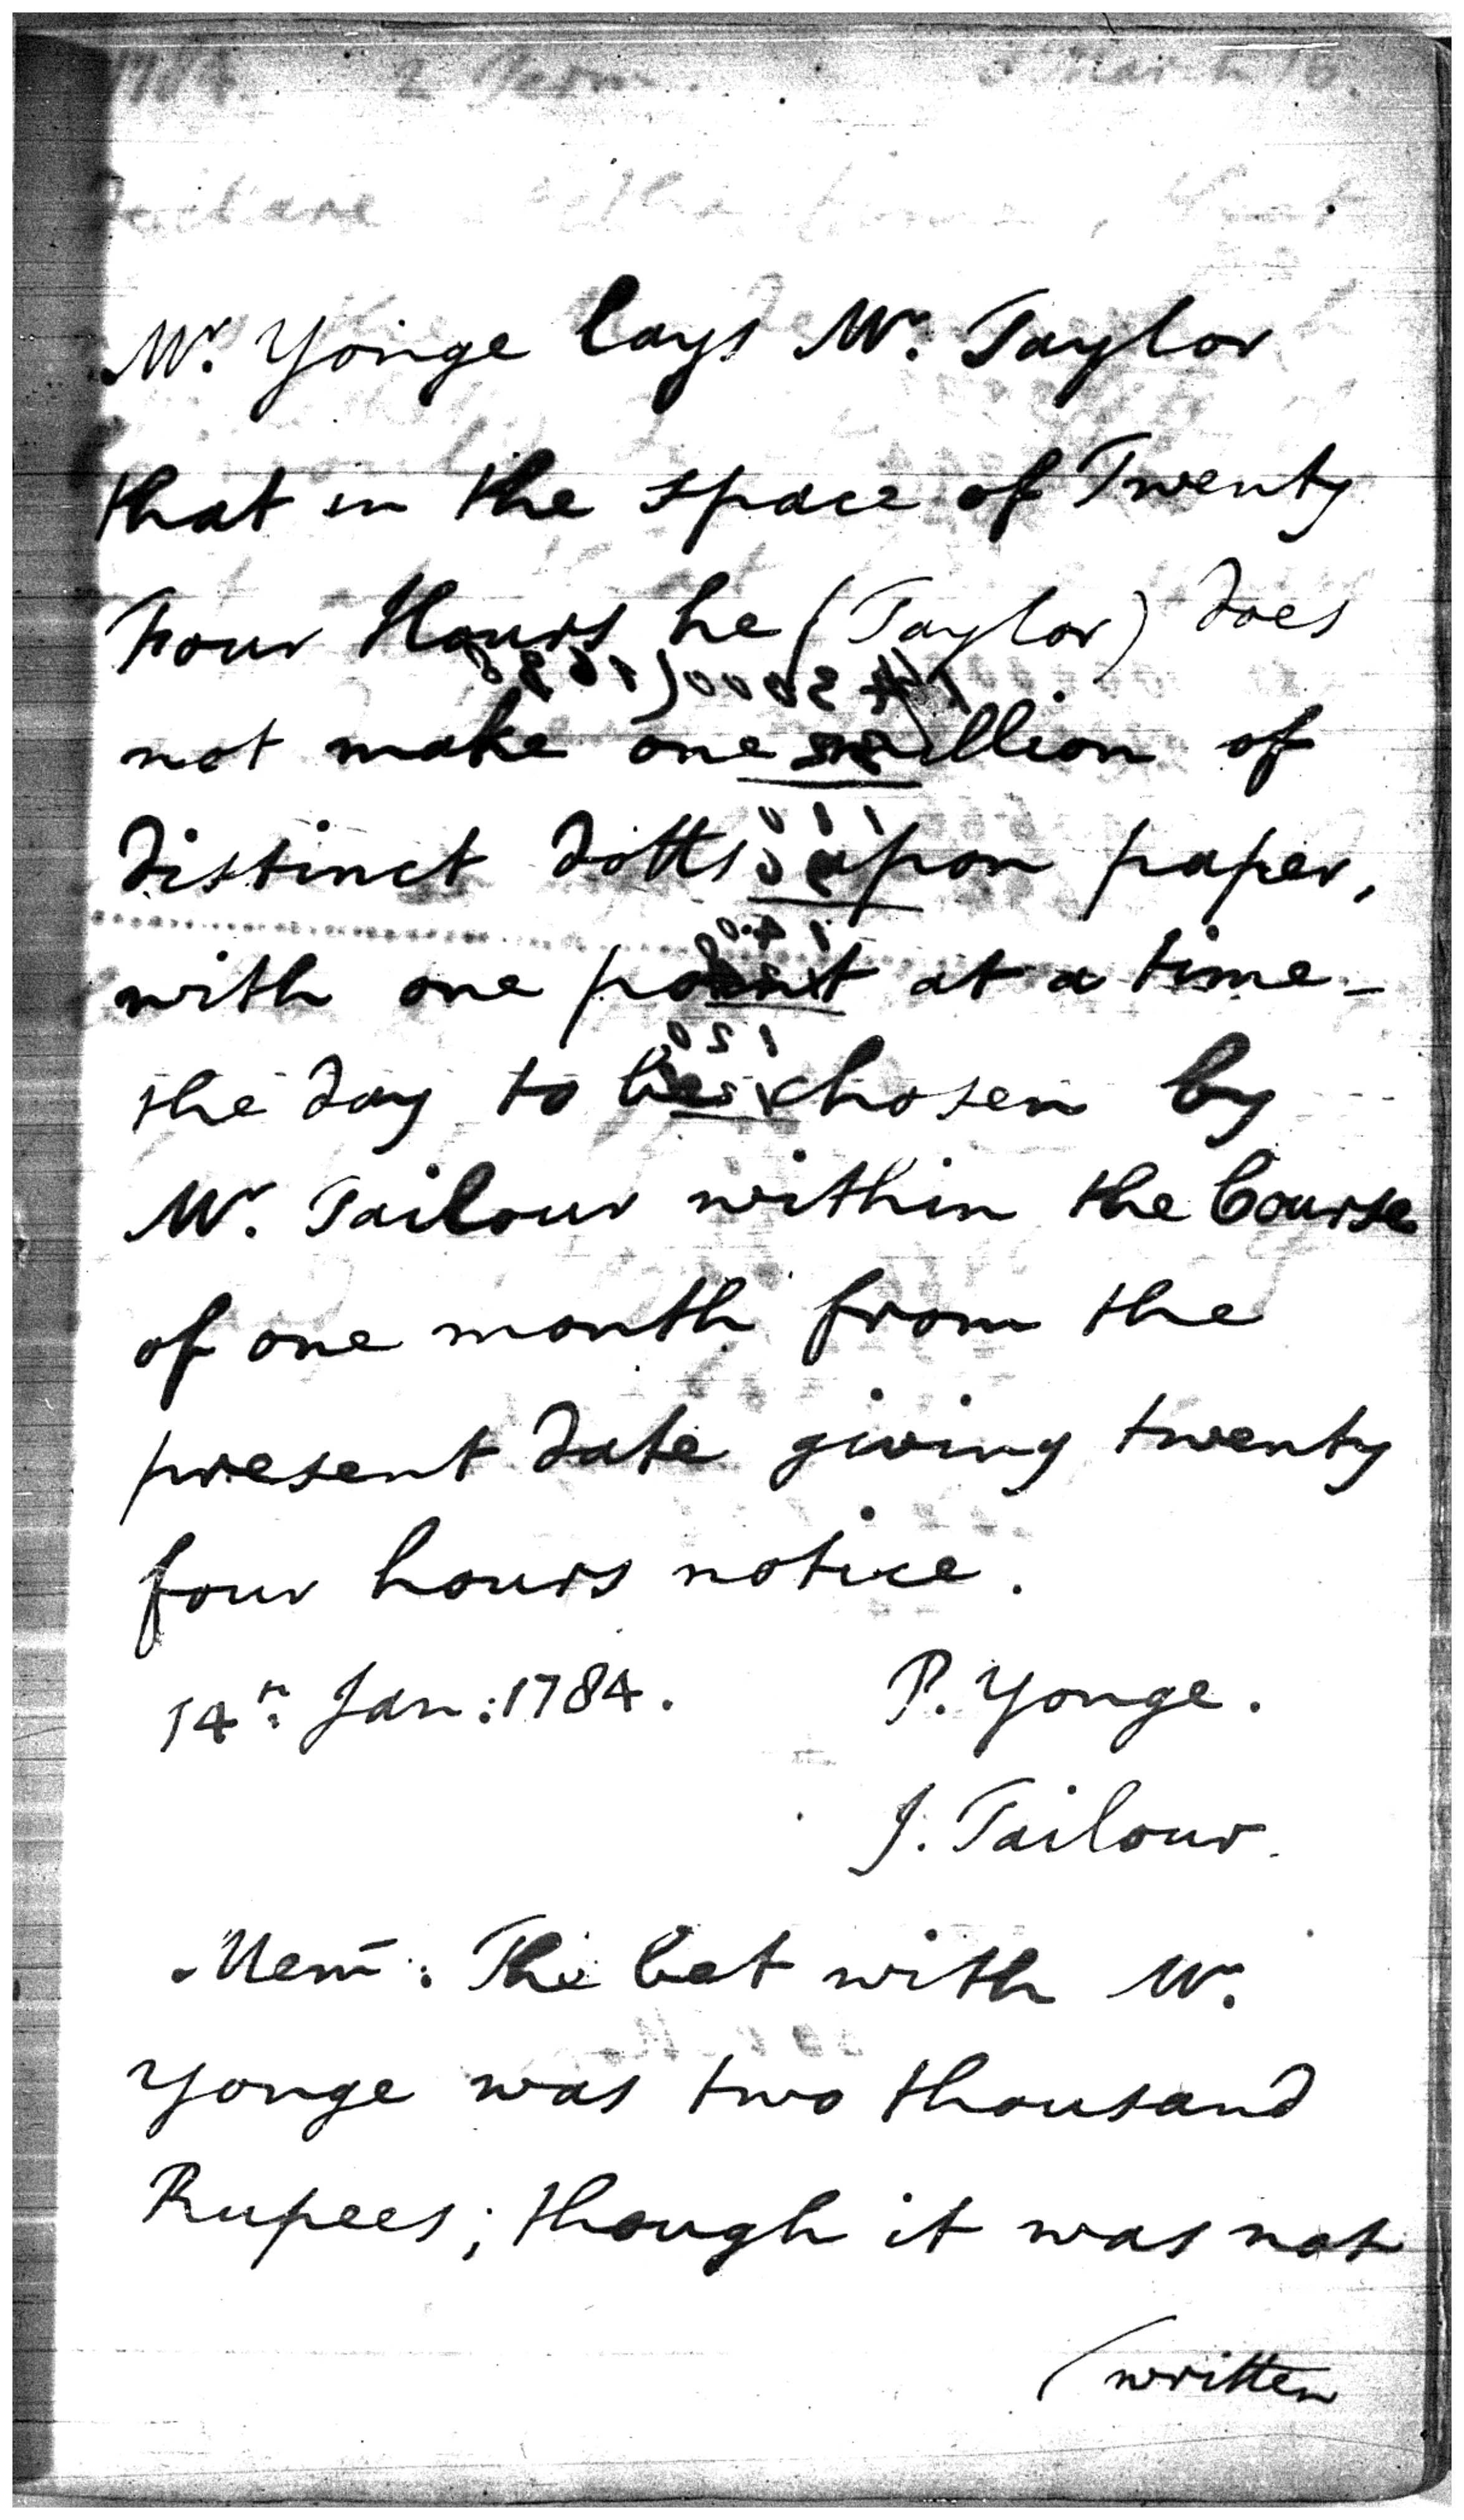 Mr. Yonge lays Mr. Taylor
that in the space of Twenty
Four Hours he (Taylor) does
not make one million of
distinct dotts upon paper,
with one point at a time –
the day to be chosen by
Mr. Tailour within the Course
of one month from the
present date giving twenty
four hours notice.
14th Jan: 1784. P. Yonge.
J. Tailour.
Mem: The bet with Mr.
Yonge was two thousand
Rupees; though it was not
(written